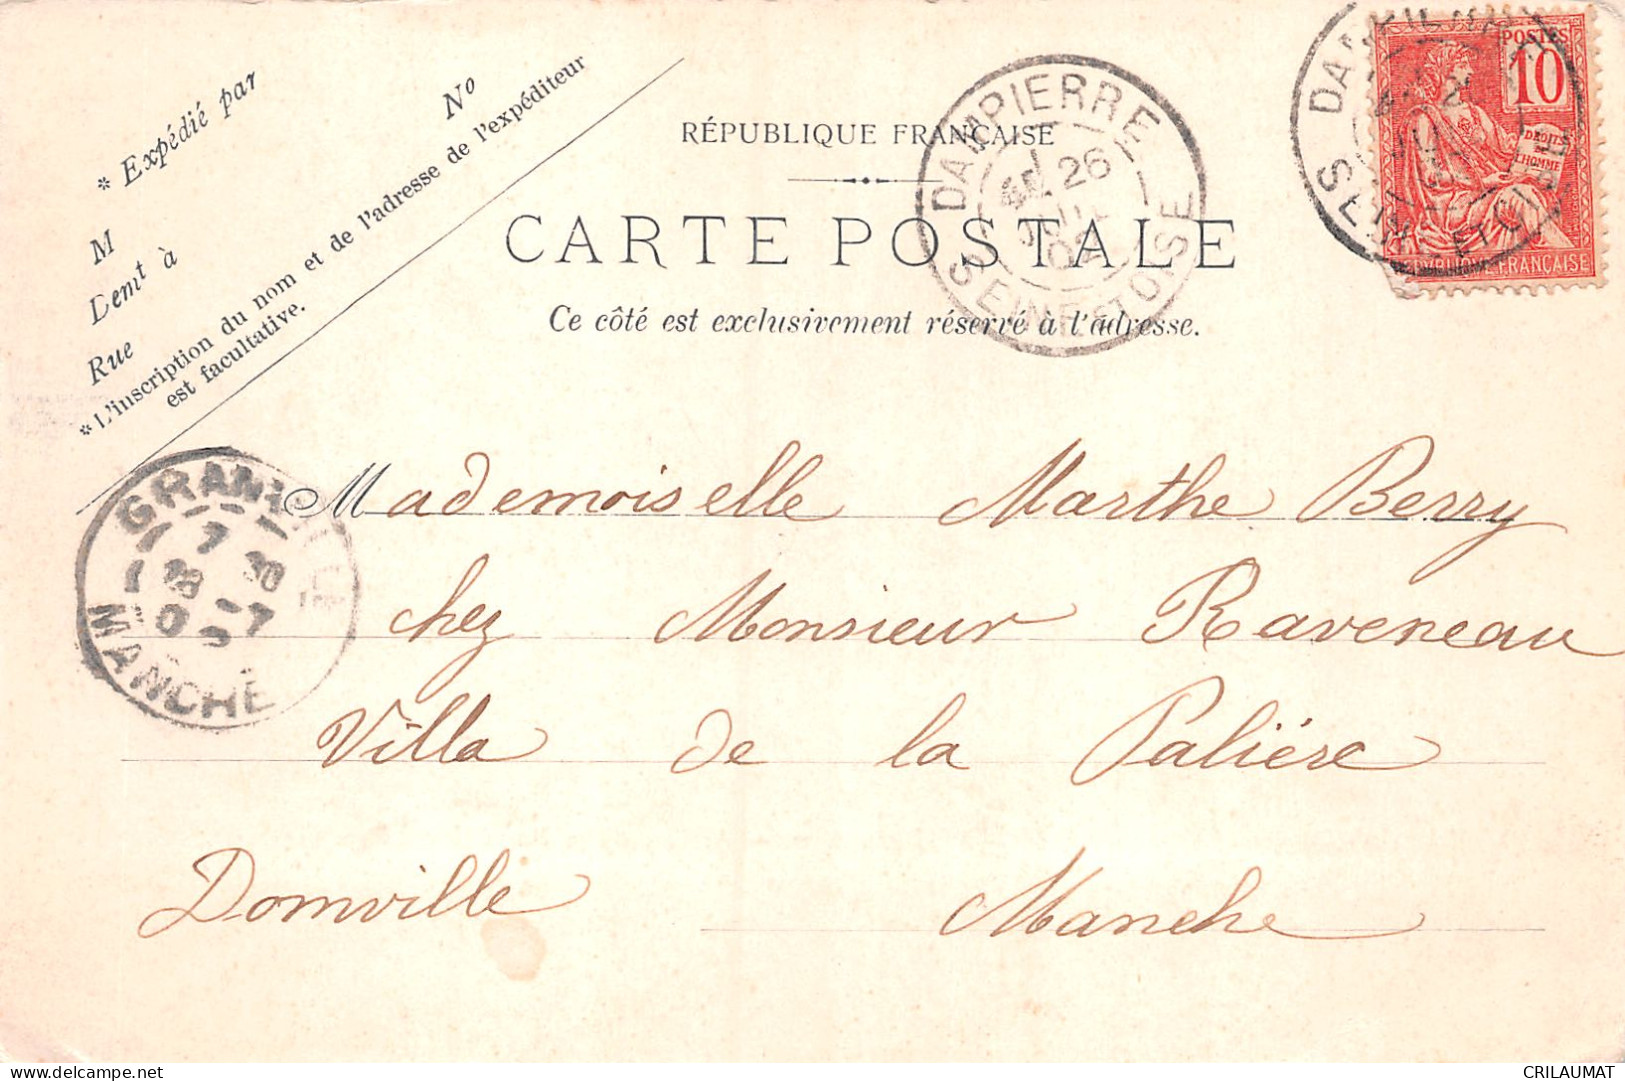 * Expédié par
M
Demt à
Rue
No
*L'inscription du nom et de l'adresse de l'expéditeur
est facultative.
RÉPUBLIQUE FRANÇAISE
CARTE POSTALE
Ce côté est exclusivement réservé à l'adresse.
DAMPIERRE
26
SEINE ET OISE
POSTES
10
DROITS
DE
L'HOMME
REPUBLIQUE FRANÇAISE
GRANVILLE
7 30
28 - 7
MANCHE
Mademoiselle Marthe Berry
chez Monsieur Raveneau
Villa de la Palière
Donville Manche
delcampe.net
CRILAUMAT